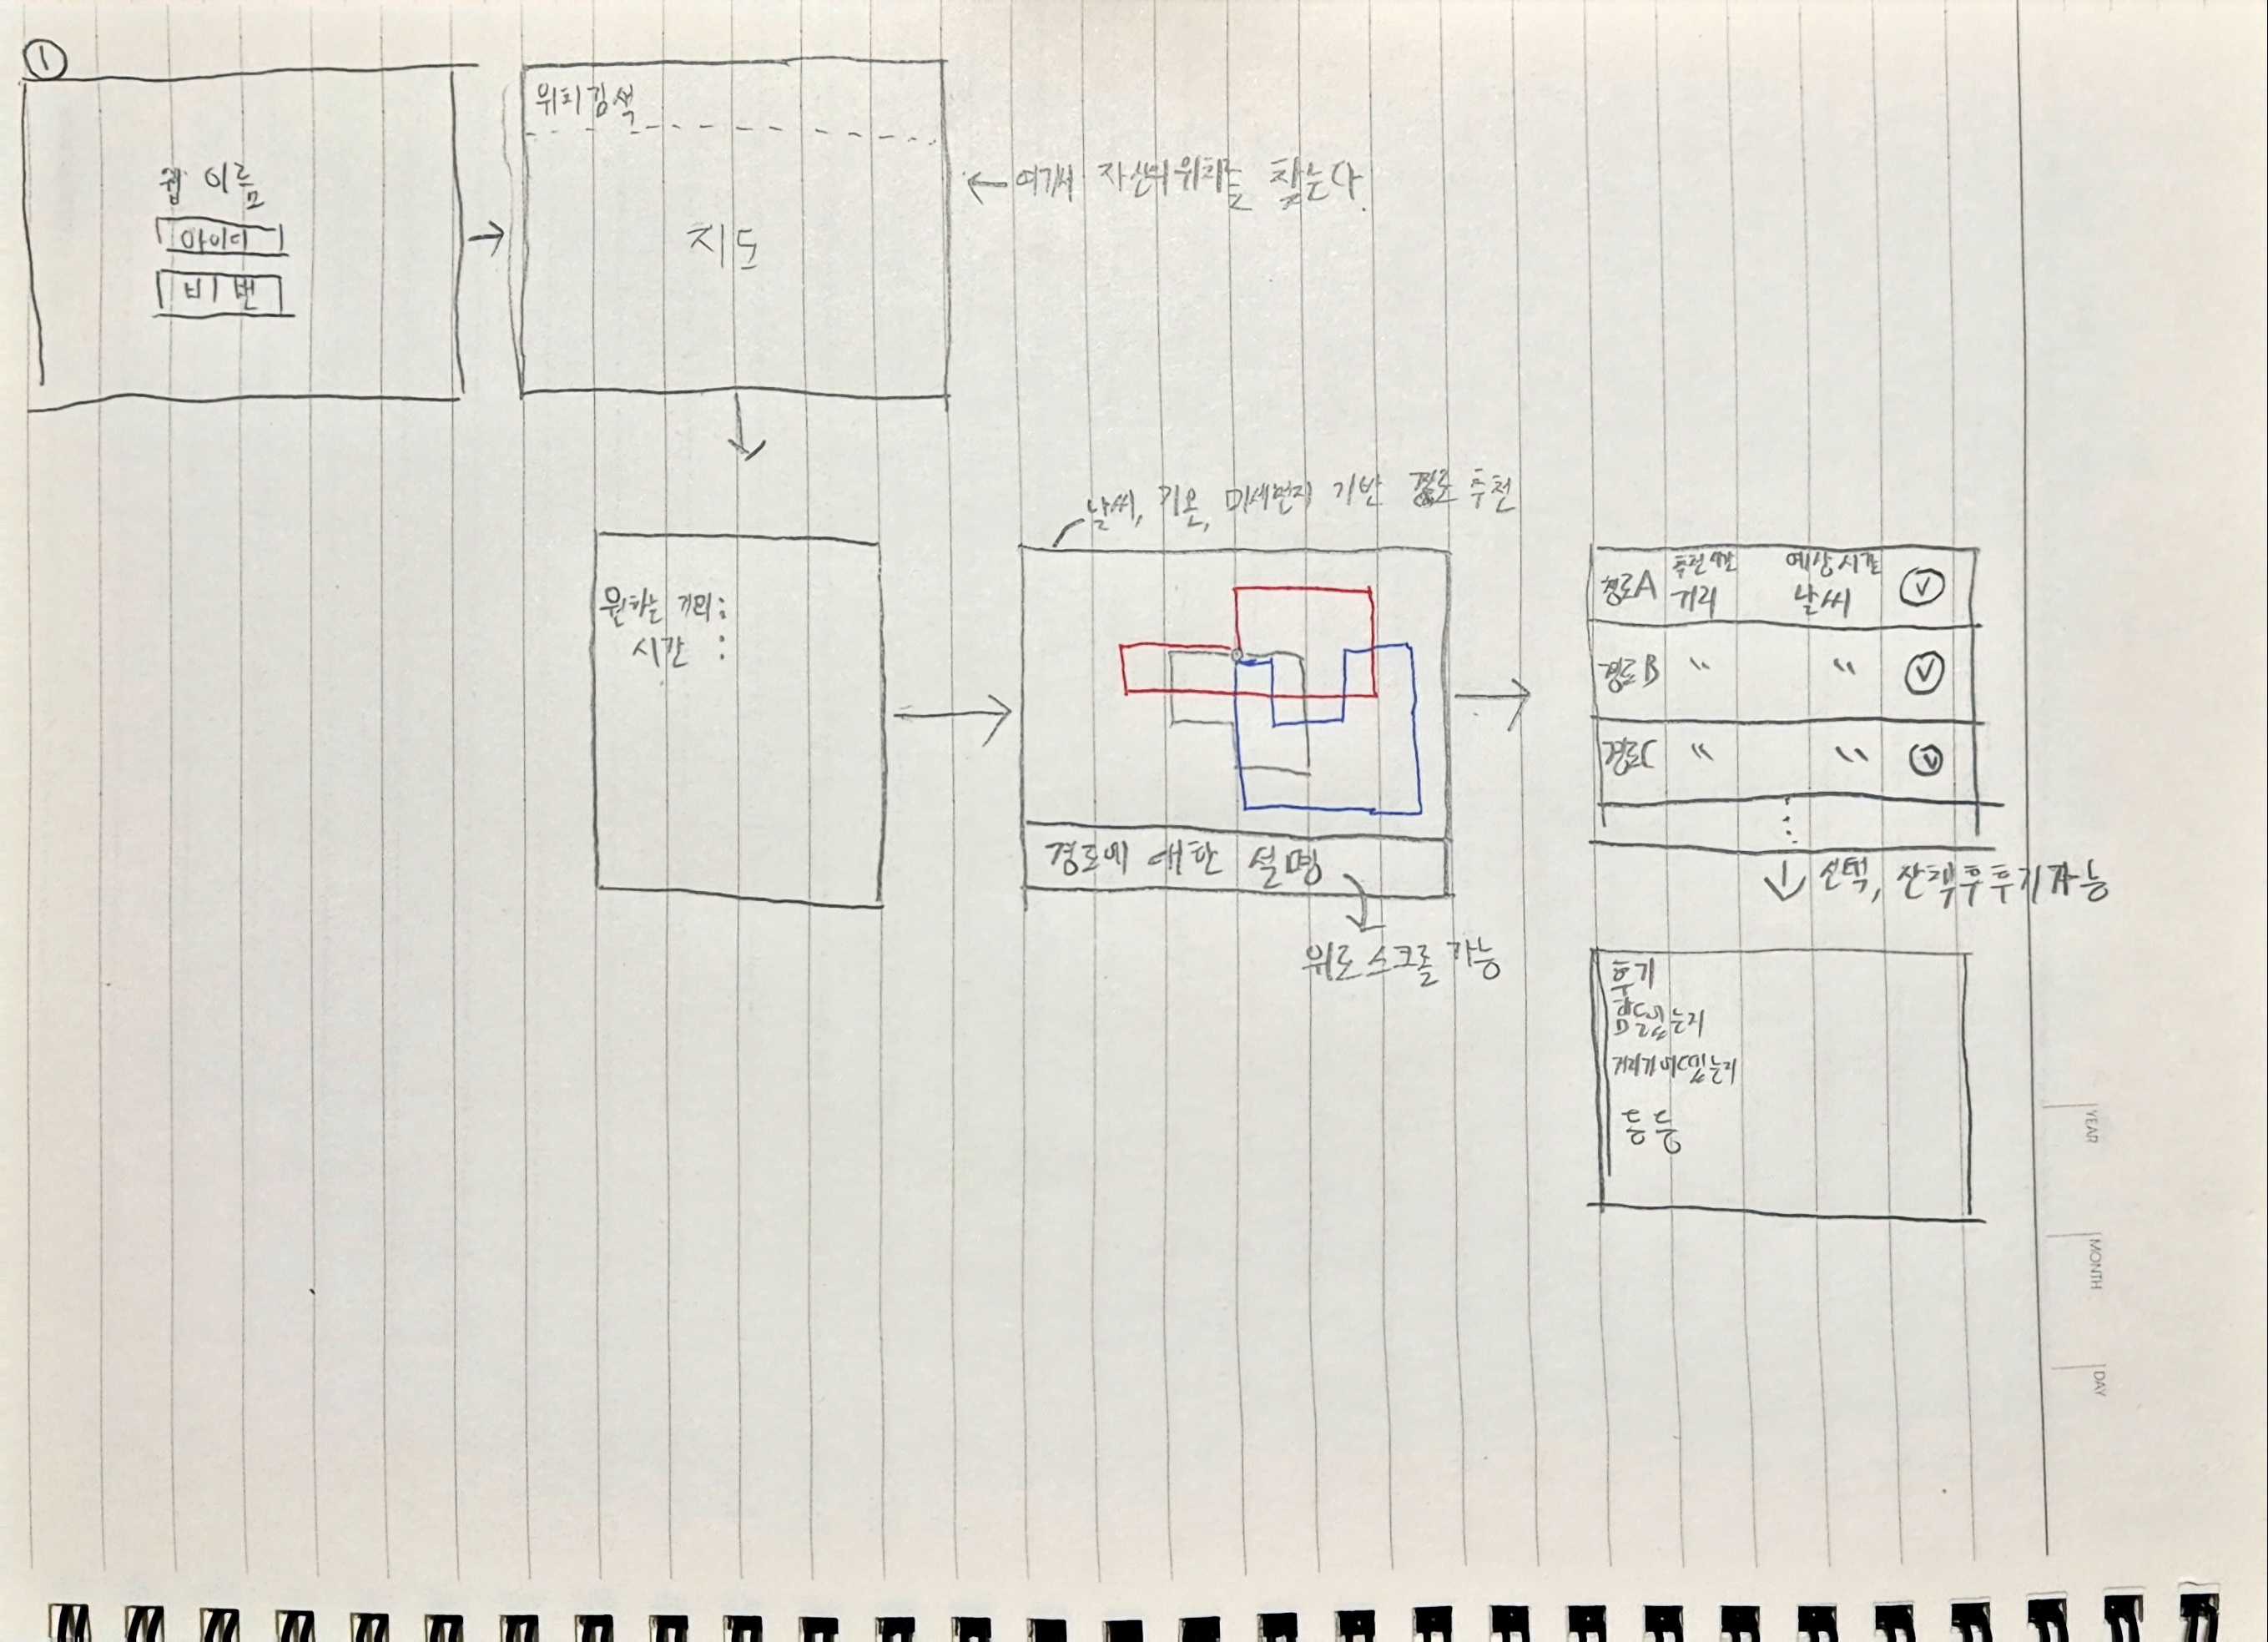 ①
웹 이름
아이디
비번
위치검색
지도
← 여기서 자신의 위치를 찾는다.
원하는 거리:
시간 :
날씨, 기온, 미세먼지 기반 경로 추천
경로에 대한 설명
위로 스크롤 가능
경로A 거리 예상시간 날씨 ✓
경로B 〃 〃 ✓
경로C 〃 〃 ✓
⋮
선택, 산책후 후기 가능
후기
힘들었는지
거리가 어땠는지
등등
YEAR
MONTH
DAY